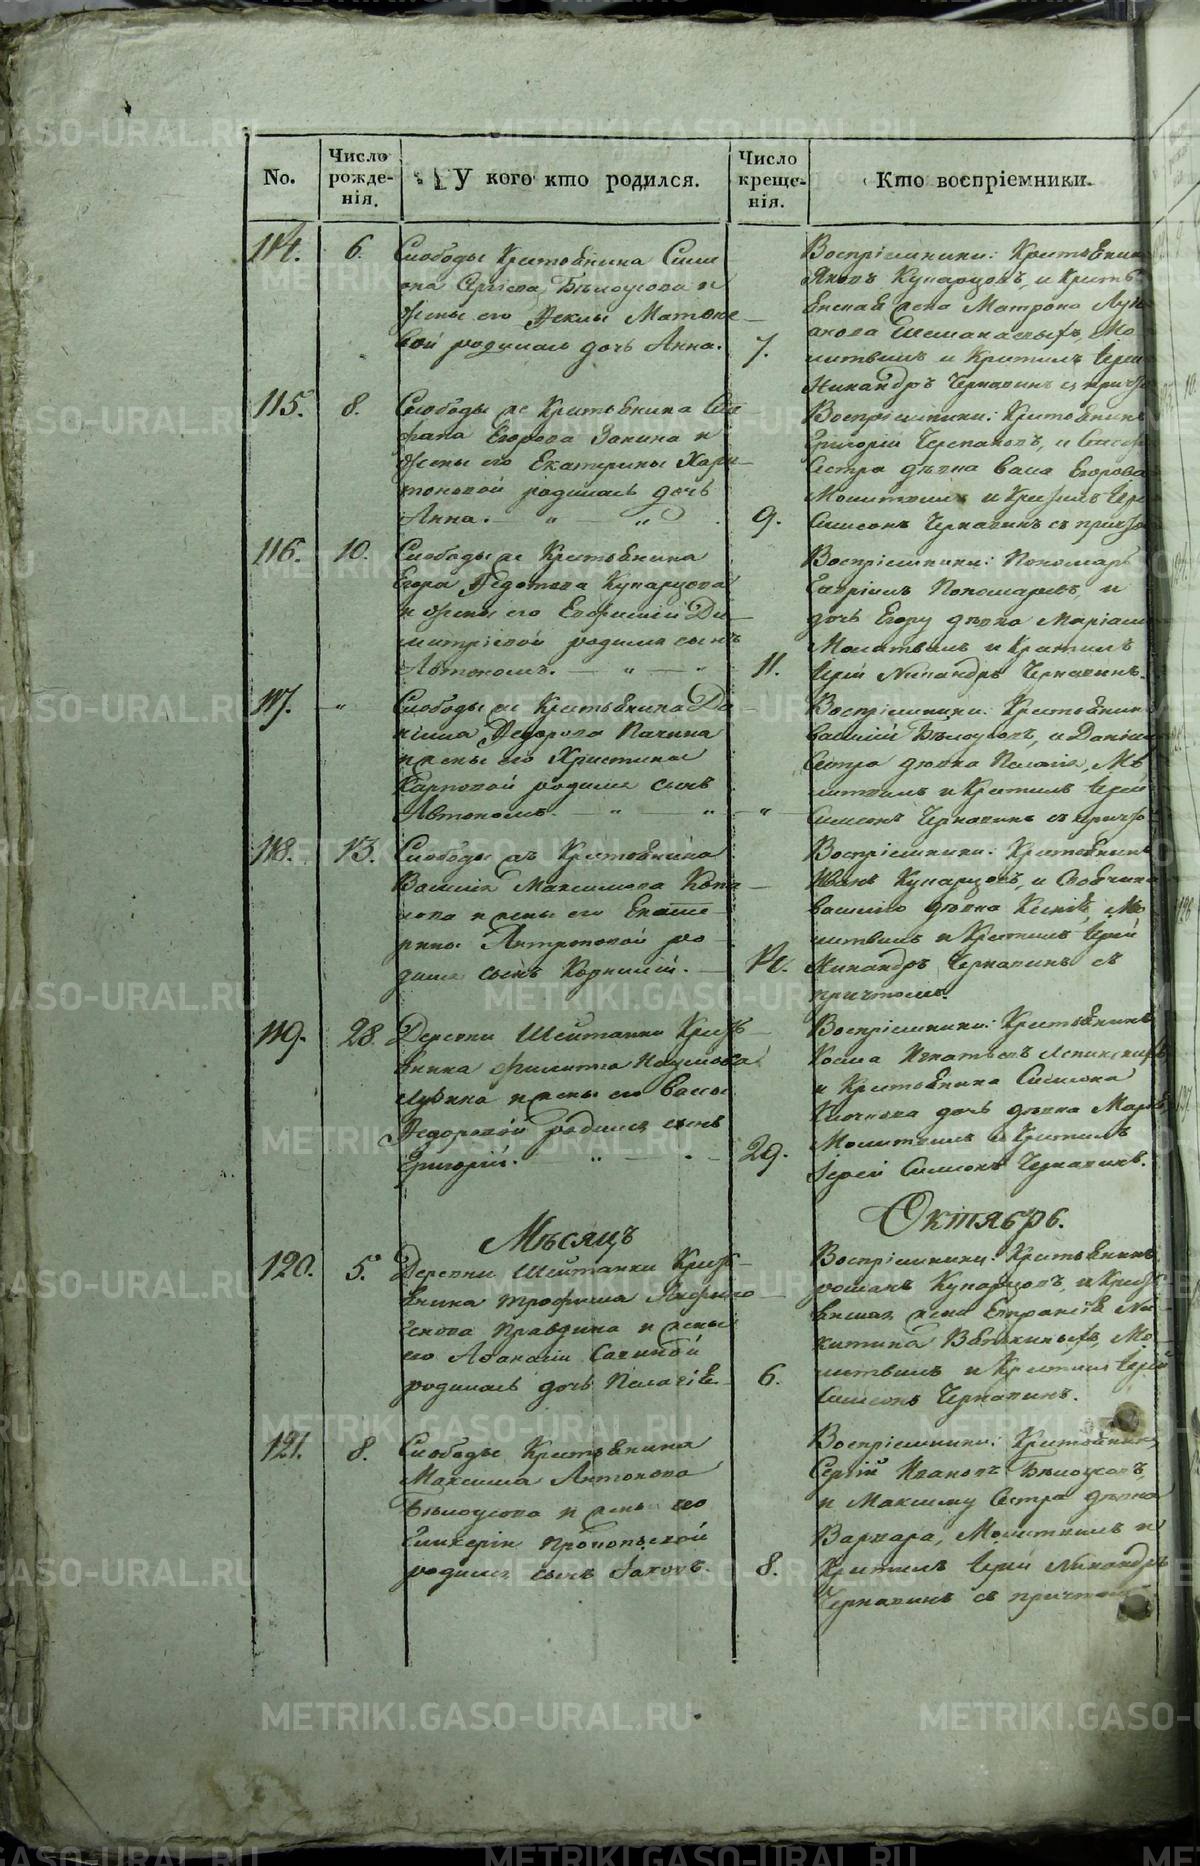 No.
Число рожде-нія.
У кого кто родился.
Число креще-нія.
Кто воспріемники.
114.
6.
Слободы Крстьянина Сим
она Сергѣева Бѣлоусова и
жены его Феклы
родилась дочь Анна.
7.
Воспріемники: Крстьянин
Яковъ Купарцовъ, и Крсть
янская жена Матрона
Мо
литвилъ и Крстилъ Іерей
Никандръ Чернавинъ съ причто
115.
8.
Слободы же Крстьянина
Егорова Зонина и
жены его Екатерины Хари
тоновой родилась дочь
Анна.
9.
Воспріемники: Крстьянинъ
Григорій Черепановъ, и
Сестра дѣвка Васса Егорова
Молитвилъ и Крстилъ Іерей
Симеонъ Чернавинъ съ причто
116.
10.
Слободы же Крстьянина
Егора Федотова Купарцова
и жены его Евфиміи Ди
митріевой родился сынъ
Автономъ.
11.
Воспріемники: Пономарь
Гавріилъ Пономаревъ, и
дочь Егору дѣвка Маріамна
Молитвилъ и Крстилъ
Іерей Никандръ Чернавинъ.
117.
"
Слободы же Крстьянина Да
ніила Федорова Пачина
и жены его Христины
Карповой родился сынъ
Автономъ.
"
Воспріемники: Крстьянинъ
Василій Бѣлоусовъ, и Даніилу
Сестра дѣвка Пелагія, Мо
литвилъ и Крстилъ Іерей
Симеонъ Чернавинъ съ причто
118.
13.
Слободы жъ Крстьянина
Василія Максимова
и жены его Екате
рины Антроповой ро
дился сынъ Корнилій.
14.
Воспріемники: Крстьянинъ
Иванъ Купарцовъ, и
Василію дѣвка Ксенія, Мо
литвилъ и Крстилъ Іерей
Никандръ Чернавинъ съ
причтомъ.
119.
28.
Деревни Шейтанки Крсть
янина Филиппа Наумова
и жены его Вассы
Федоровой родился сынъ
Григорій.
29.
Воспріемники: Крстьянинъ
Козма Игнатьевъ
и Крстьянина Симеона
дочь дѣвка
Молитвилъ и Крстилъ
Іерей Симеонъ Чернавинъ.
Мѣсяцъ
Октябрь.
120.
5.
Деревни Шейтанки Крсть
янина Трофима
Правдина и жены
его Афанасіи Савиной
родилась дочь Пелагія
6.
Воспріемники: Крстьянинъ
Романъ Купарцовъ, и Крсть
янская жена Евпраксія Ни
китина Мо
литвилъ и Крстилъ Іерей
Симеонъ Чернавинъ.
121.
8.
Слободы Крстьянина
Максима Антонова
Бѣлоусова и жены его
Гликеріи Прокопьевой
родился сынъ Іаковъ.
8.
Воспріемники: Крстьянинъ
Сергій Ивановъ Бѣлоусовъ,
и Максиму Сестра дѣвка
Варвара, Молитвилъ и
Крстилъ Іерей Никандръ
Чернавинъ съ причтомъ
METRIKI.GASO-URAL.RU